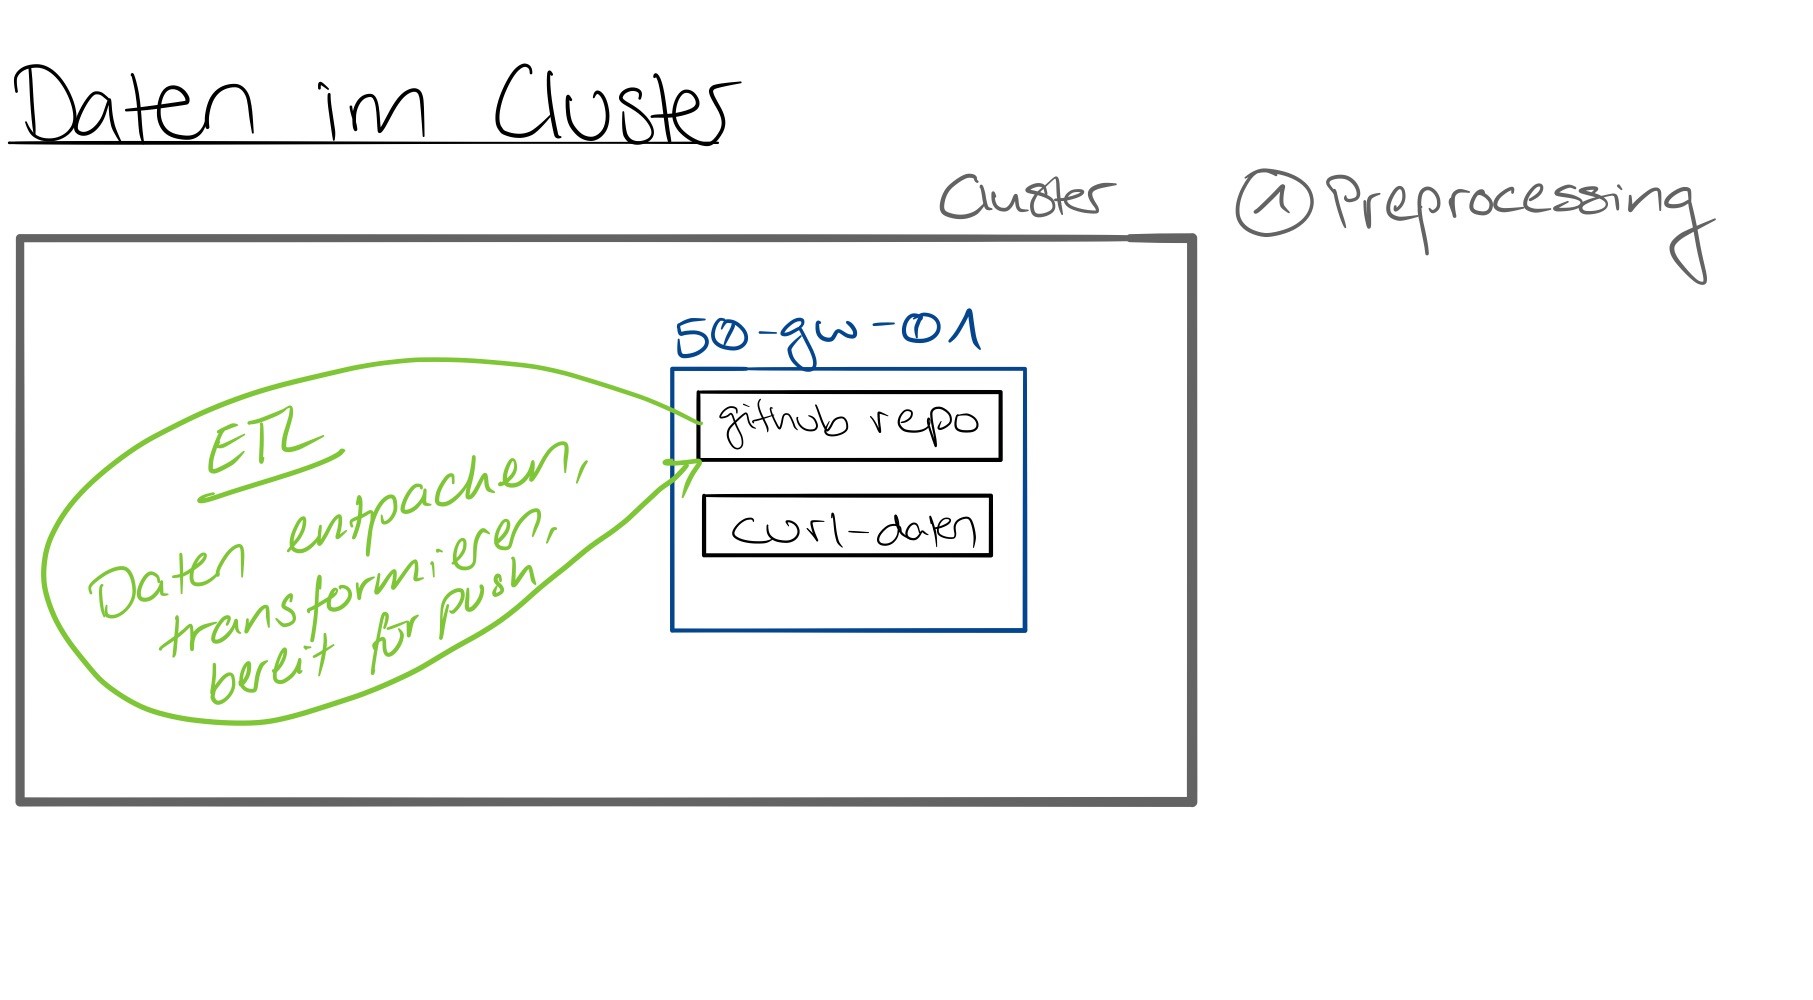 Daten im Cluster
Cluster
① Preprocessing
50-gw-01
github repo
curl-daten
ETL
Daten entpacken,
transformieren,
bereit für push